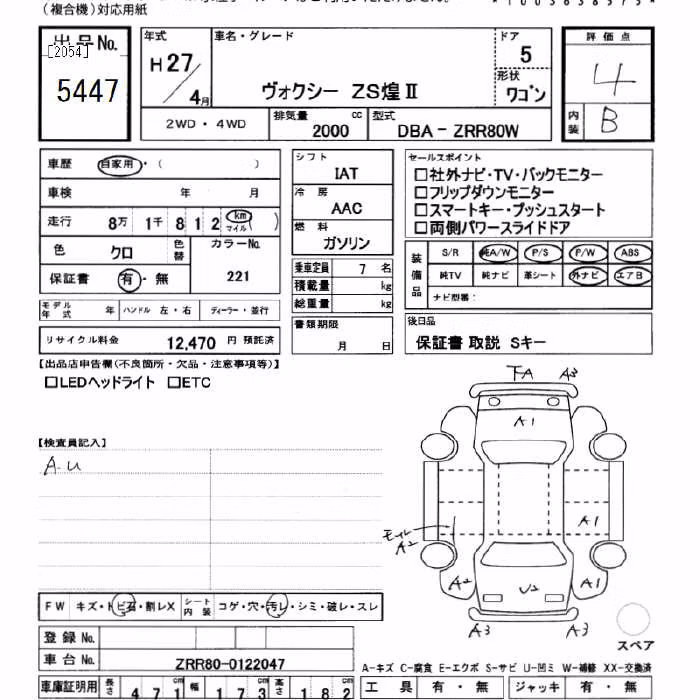 (複合機)対応用紙
出品No.
[2054]
5447
年式
H27/4月
車名・グレード
ヴォクシー ZS煌Ⅱ
ドア
5
形状
ワゴン
評価点
4
内装
B
2WD・4WD
排気量
2000 cc
型式
DBA-ZRR80W
車歴 自家用・( )
車検 年 月
走行 8万 1千 8 1 2 km マイル ( )
色 クロ 色替
カラーNo.
221
保証書 有・無
モデル年式 年 ハンドル 左・右 ディーラー・並行
リサイクル料金 12,470 円 預託済
シフト
IAT
冷房
AAC
燃料
ガソリン
乗車定員 7 名
積載量 kg
総重量 kg
書類期限
月 日
セールスポイント
□社外ナビ・TV・バックモニター
□フリップダウンモニター
□スマートキー・プッシュスタート
□両側パワースライドドア
装備品
S/R 純A/W P/S P/W ABS
純TV 純ナビ 革シート 外ナビ エアB
ナビ型番:
後日品
保証書 取説 Sキー
【出品店申告欄(不良箇所・欠品・注意事項等)】
□LEDヘッドライト □ETC
【検査員記入】
A.U
FA A3
A1
A1
モール
A2
A2
U2
A1
A3
A3
スペア
FW キズ・トビ石・割レX
シート内装 コゲ・穴・汚レ・シミ・破レ・スレ
登録No.
車台No. ZRR80-0122047
車庫証明用 長さ 471cm 幅 173cm 高さ 182cm
A-キズ C-腐食 E-エクボ S-サビ U-凹ミ W-補修 XX-交換済
工具 有・無 ジャッキ 有・無